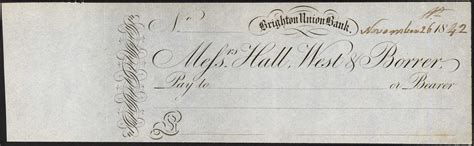 No
Brighton Union Bank.
November 26 1842
Messrs Hall, West & Borrer.
Pay to or Bearer
£